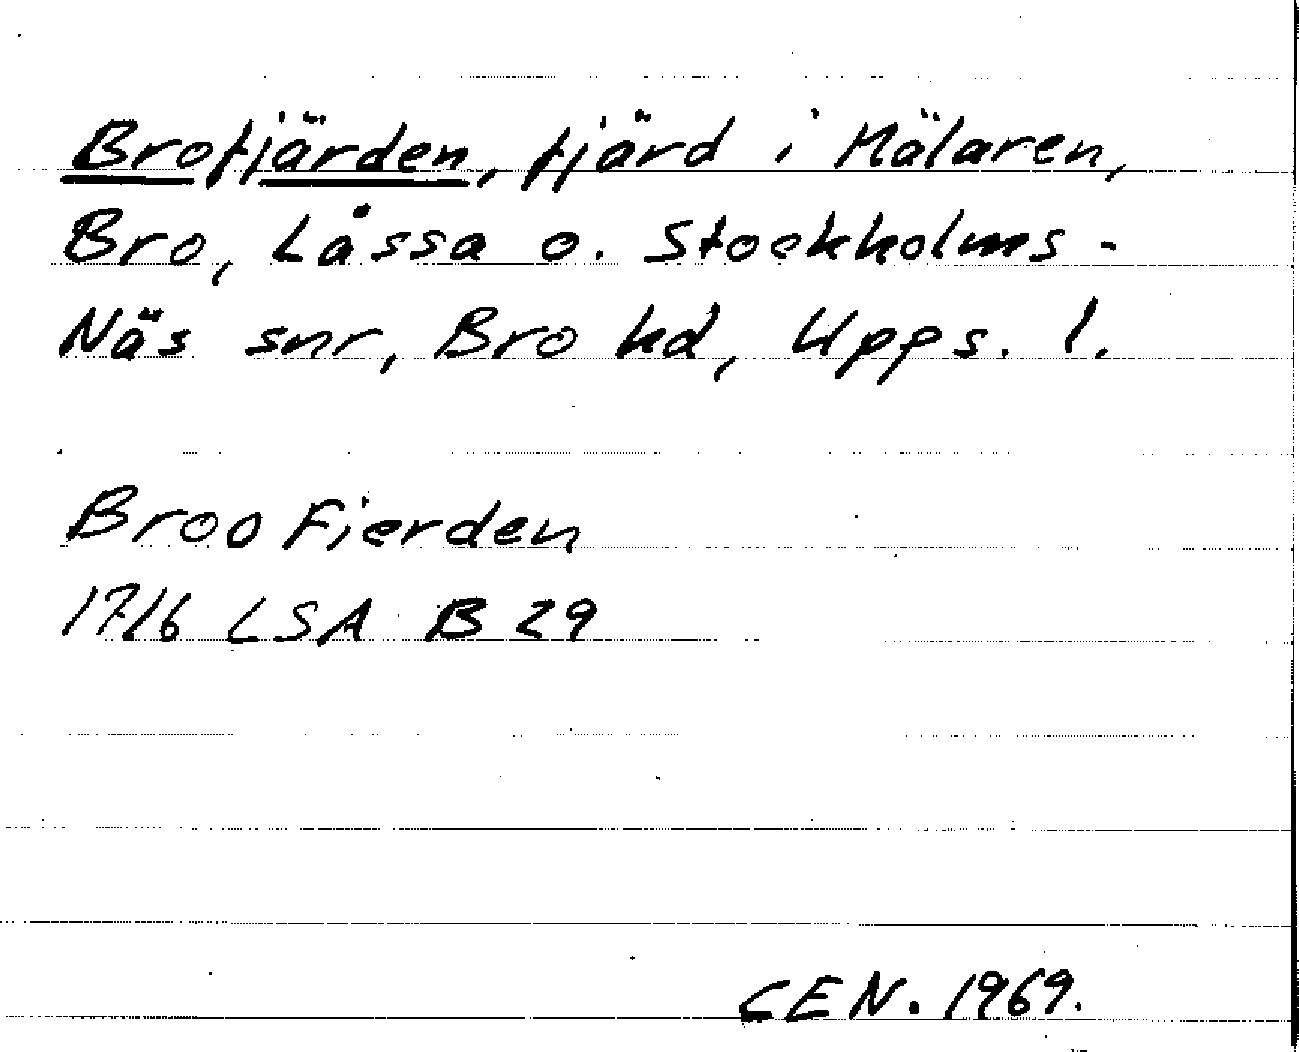 Brofjärden, fjärd i Mälaren,
Bro, Låssa o. Stockholms-
Näs snr, Bro hd, Upps. l.
Broo Fierden
1716 LSA B 29
CEN. 1969.